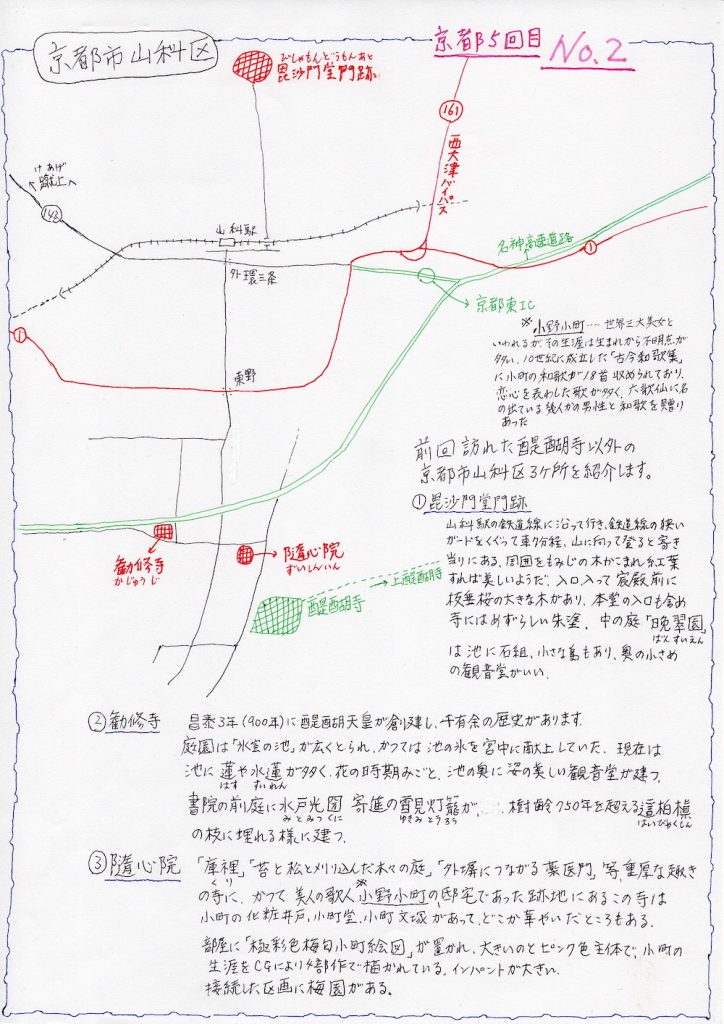 京都市山科区
京都5回目
No.2
びしゃもんどうもんあと
毘沙門堂門跡
161
西大津バイパス
けあげ
蹴上へ
143
山科駅
外環三条
名神高速道路
1
京都東IC
1
東野
※小野小町‥‥世界三大美女と
いわれるが、その生涯は生まれから不明点が
多い。10世紀に成立した「古今和歌集」
に小町の和歌が18首収められており、
恋心を表わした歌が多く、六歌仙に名
の出ている幾人かの男性と和歌を贈り
あった
前回訪れた醍醐寺以外の
京都市山科区3ヶ所を紹介します。
①毘沙門堂門跡
山科駅の鉄道線に沿って行き、鉄道線の狭い
ガードをくぐって車7分程、山に向って登ると寄き
当りにある。周囲をもみじの木がこまれ紅葉
すれば美しいようだ。入口入って宸殿前に
枝垂桜の大きな木があり、本堂の入口も含め
寺にはめずらしい朱塗、中の庭「晩翠園」
ばんすいえん
は池に石組、小さな島もあり、奥の小さめ
の観音堂がいい。
勧修寺
かじゅうじ
隨心院
ずいしんいん
醍醐寺
上醍醐寺
②勧修寺 昌泰3年(900年)に醍醐天皇が創建し、千有余の歴史があります。
庭園は「氷室の池」が広くとられ、かつては池の氷を宮中に献上していた。現在は
池に蓮や水蓮が多く、花の時期みごと、池の奥に姿の美しい観音堂が建つ。
はす すいれん
書院の前庭に水戸光圀寄進の雪見灯籠が、‥‥樹齢750年を超える這柏槙
みとみつくに ゆきみとうろう はいびゃくしん
の枝に埋れる様に建つ。
③隨心院 「庫裡」「苔と松と刈り込んだ木々の庭」「外塀につながる薬医門」等、重厚な趣き
くり
の寺に、かつて美人の歌人※小野小町の邸宅であった跡地にあるこの寺は
小町の化粧井戸、小町堂、小町文塚があって、どこか華やいだところもある。
部屋に「極彩色梅匂小町絵図」が置かれ、大きいのとピンク色主体で、小町の
生涯をCGにより4部作で描かれている。インパントが大きい。
接続した区画に梅園がある。